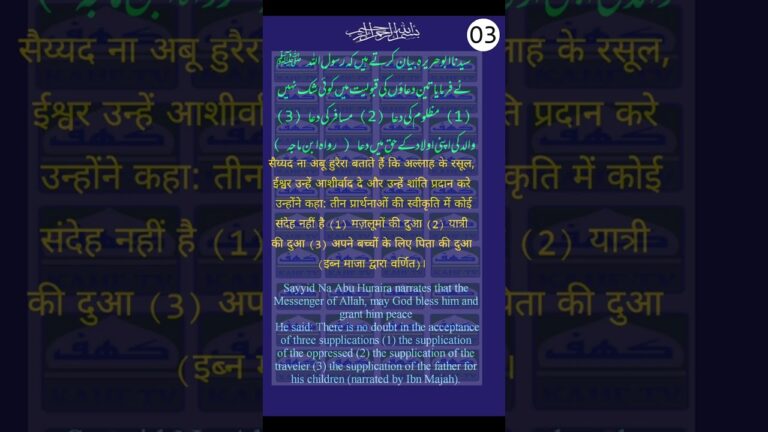 03
سیدنا ابو ھریرہ بیان کرتے ہیں کہ رسول اللہ ﷺ
نے فرمایا تین دعاؤں کی قبولیت میں کوئی شک نہیں
(1) مظلوم کی دعا (2) مسافر کی دعا (3)
والد کی اپنی اولاد کے حق میں دعا ( رواہ ابن ماجہ )
सैय्यद ना अबू हुरैरा बताते हैं कि अल्लाह के रसूल,
ईश्वर उन्हें आशीर्वाद दे और उन्हें शांति प्रदान करे
उन्होंने कहा: तीन प्रार्थनाओं की स्वीकृति में कोई
संदेह नहीं है (1) मज़लूमों की दुआ (2) यात्री
की दुआ (3) अपने बच्चों के लिए पिता की दुआ
(इब्न माजा द्वारा वर्णित)।
Sayyid Na Abu Huraira narrates that the
Messenger of Allah, may God bless him and
grant him peace
He said: There is no doubt in the acceptance
of three supplications (1) the supplication
of the oppressed (2) the supplication of the
traveler (3) the supplication of the father for
his children (narrated by Ibn Majah).